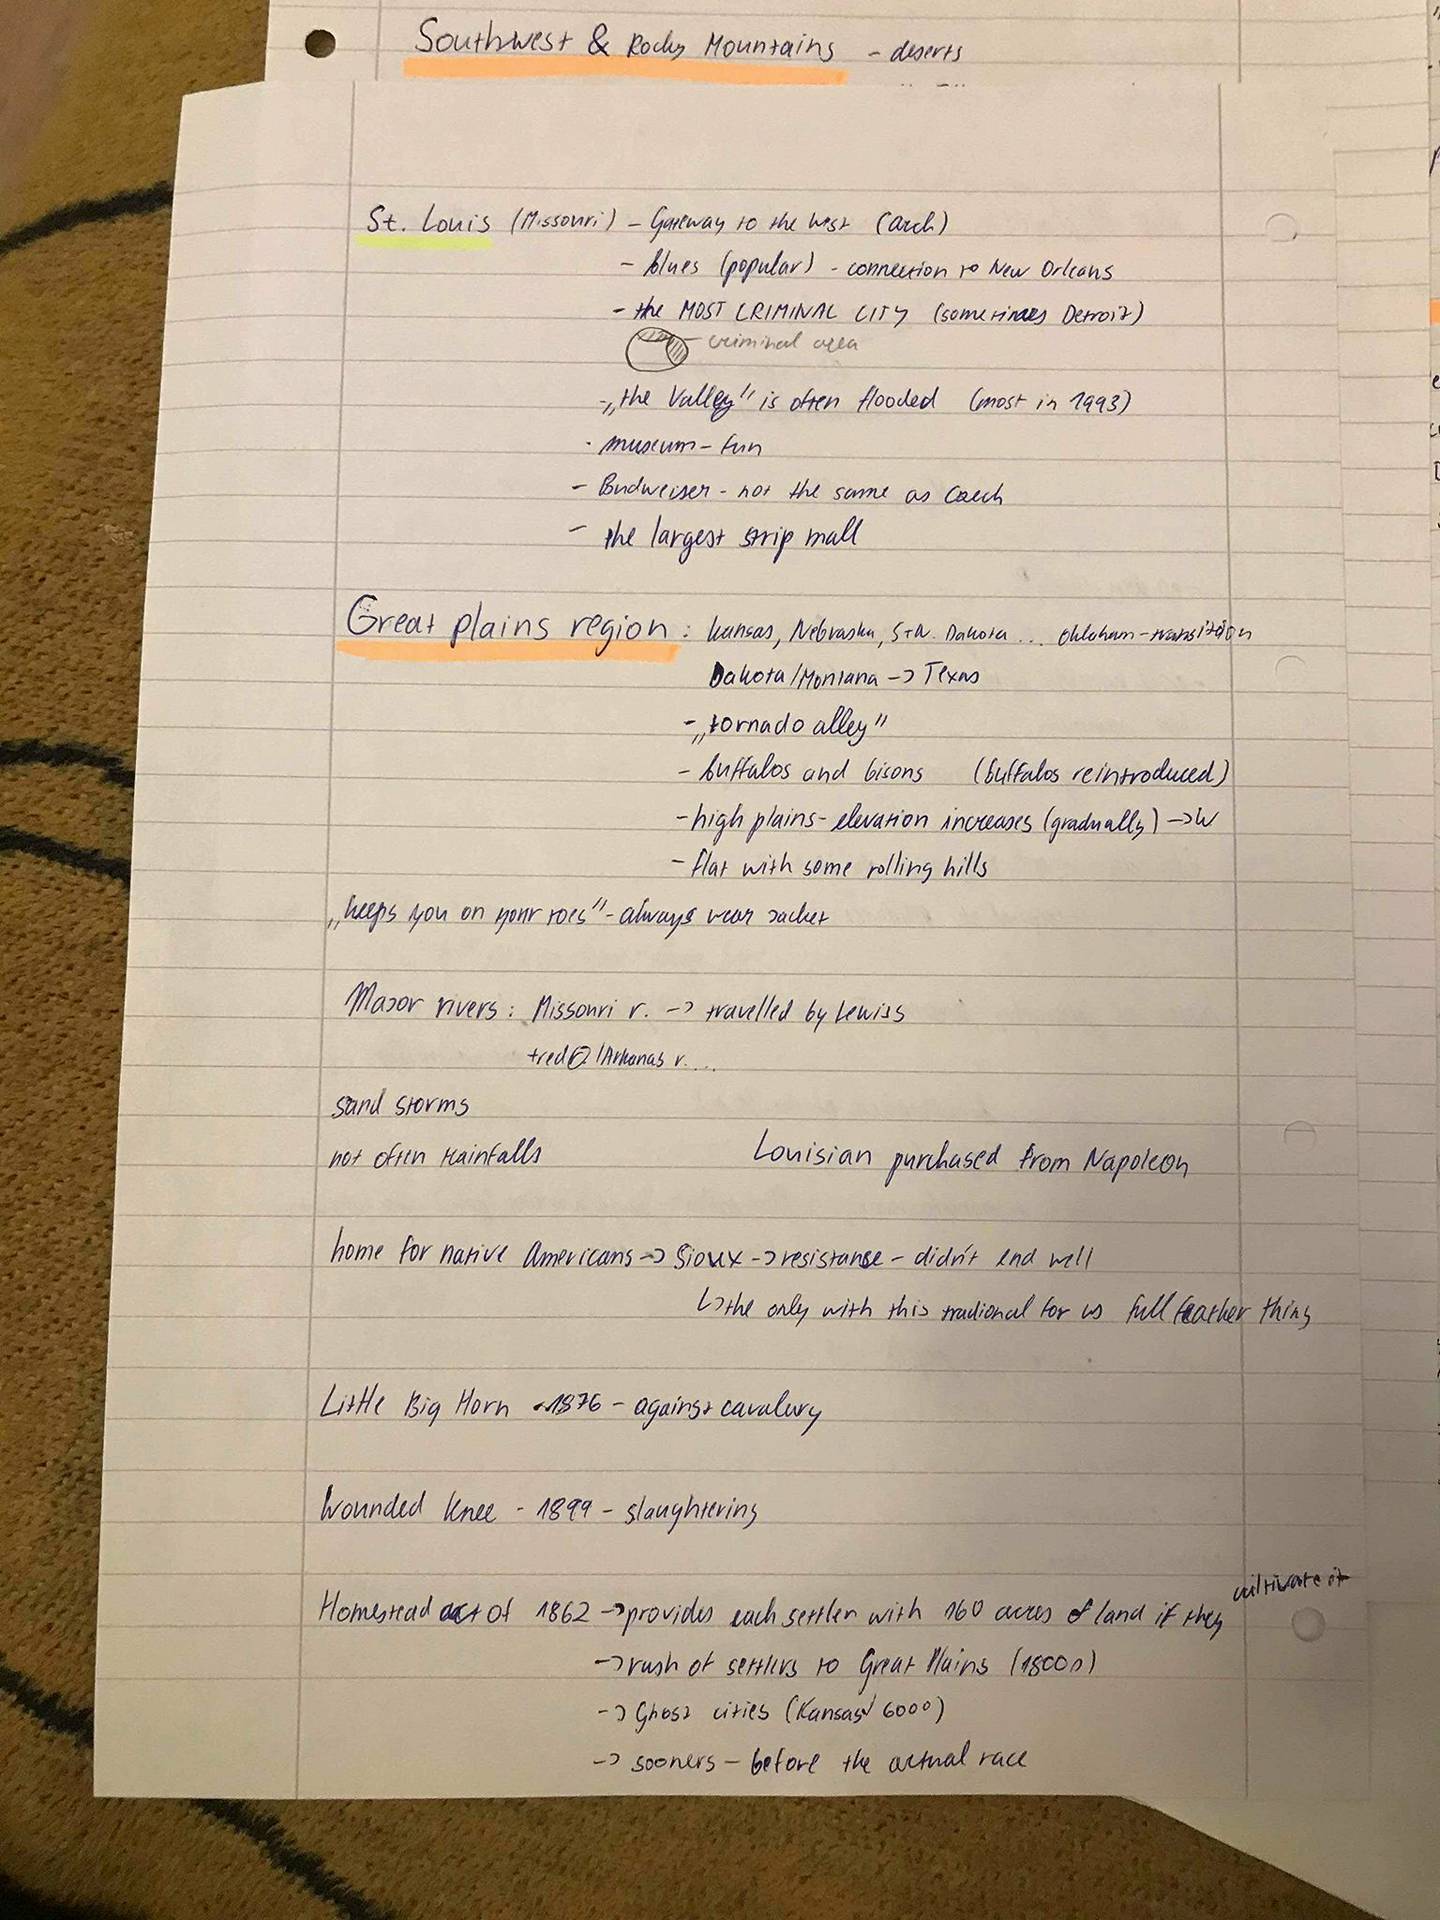 Southwest & Rocky Mountains - deserts
St. Louis (Missouri) - Gateway to the West (arch)
- blues (popular) - connection to New Orleans
- the MOST CRIMINAL CITY (sometimes Detroit)
- criminal area
- „the Valley" is often flooded (most in 1993)
- museum - fun
- Budweiser - not the same as Czech
- the largest strip mall
Great plains region: Kansas, Nebraska, S+N. Dakota ... Oklahom-transition
Dakota/Montana -> Texas
- „tornado alley"
- buffalos and bisons (buffalos reintroduced)
- high plains - elevation increases (gradually) -> W
- flat with some rolling hills
„keeps you on your toes" - always wear jacket
Major rivers: Missouri r. -> travelled by Lewiss
+red /Arkanas r. ...
sand storms
not often rainfalls Louisian purchased from Napoleon
home for native Americans -> Sioux -> resistance - didn't end well
↳ the only with this tradional for us full feather thing
Little Big Horn - 1876 - against cavalury
Wounded Knee - 1899 - slaughtering
cultivate it
Homestead act of 1862 -> provides each settler with 160 acres of land if they
-> rush of settlers to Great Plains (1800s)
-> Ghost cities (Kansas 6000)
-> sooners - before the actual race